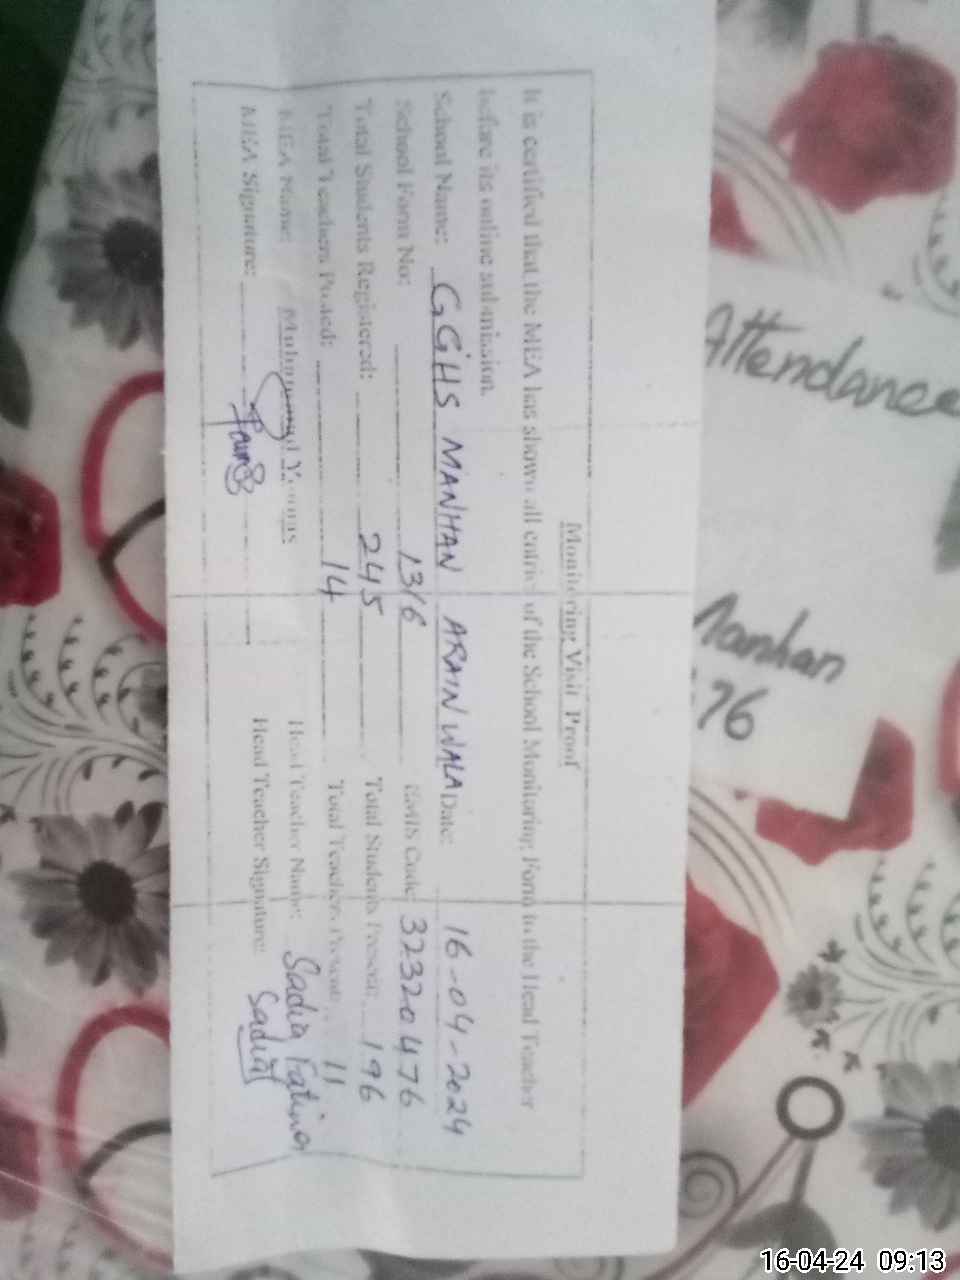 Monitoring Visit Proof
It is certified that the MEA has shown all entries of the School Monitoring Form to the Head Teacher
before its online submission.
School Name: GGHS MANHAN ARAIN WALA Date: 16-04-2024
School Form No: 1316 EMIS Code: 32320476
Total Students Registered: 245 Total Students Present: 196
Total Teachers Posted: 14 Total Teachers Present: 11
MEA Name: Muhammad Younas Head Teacher Name: Sadia Fatima
MEA Signature: Head Teacher Signature: Sadia
Attendance
Manhan
76
16-04-24 09:13